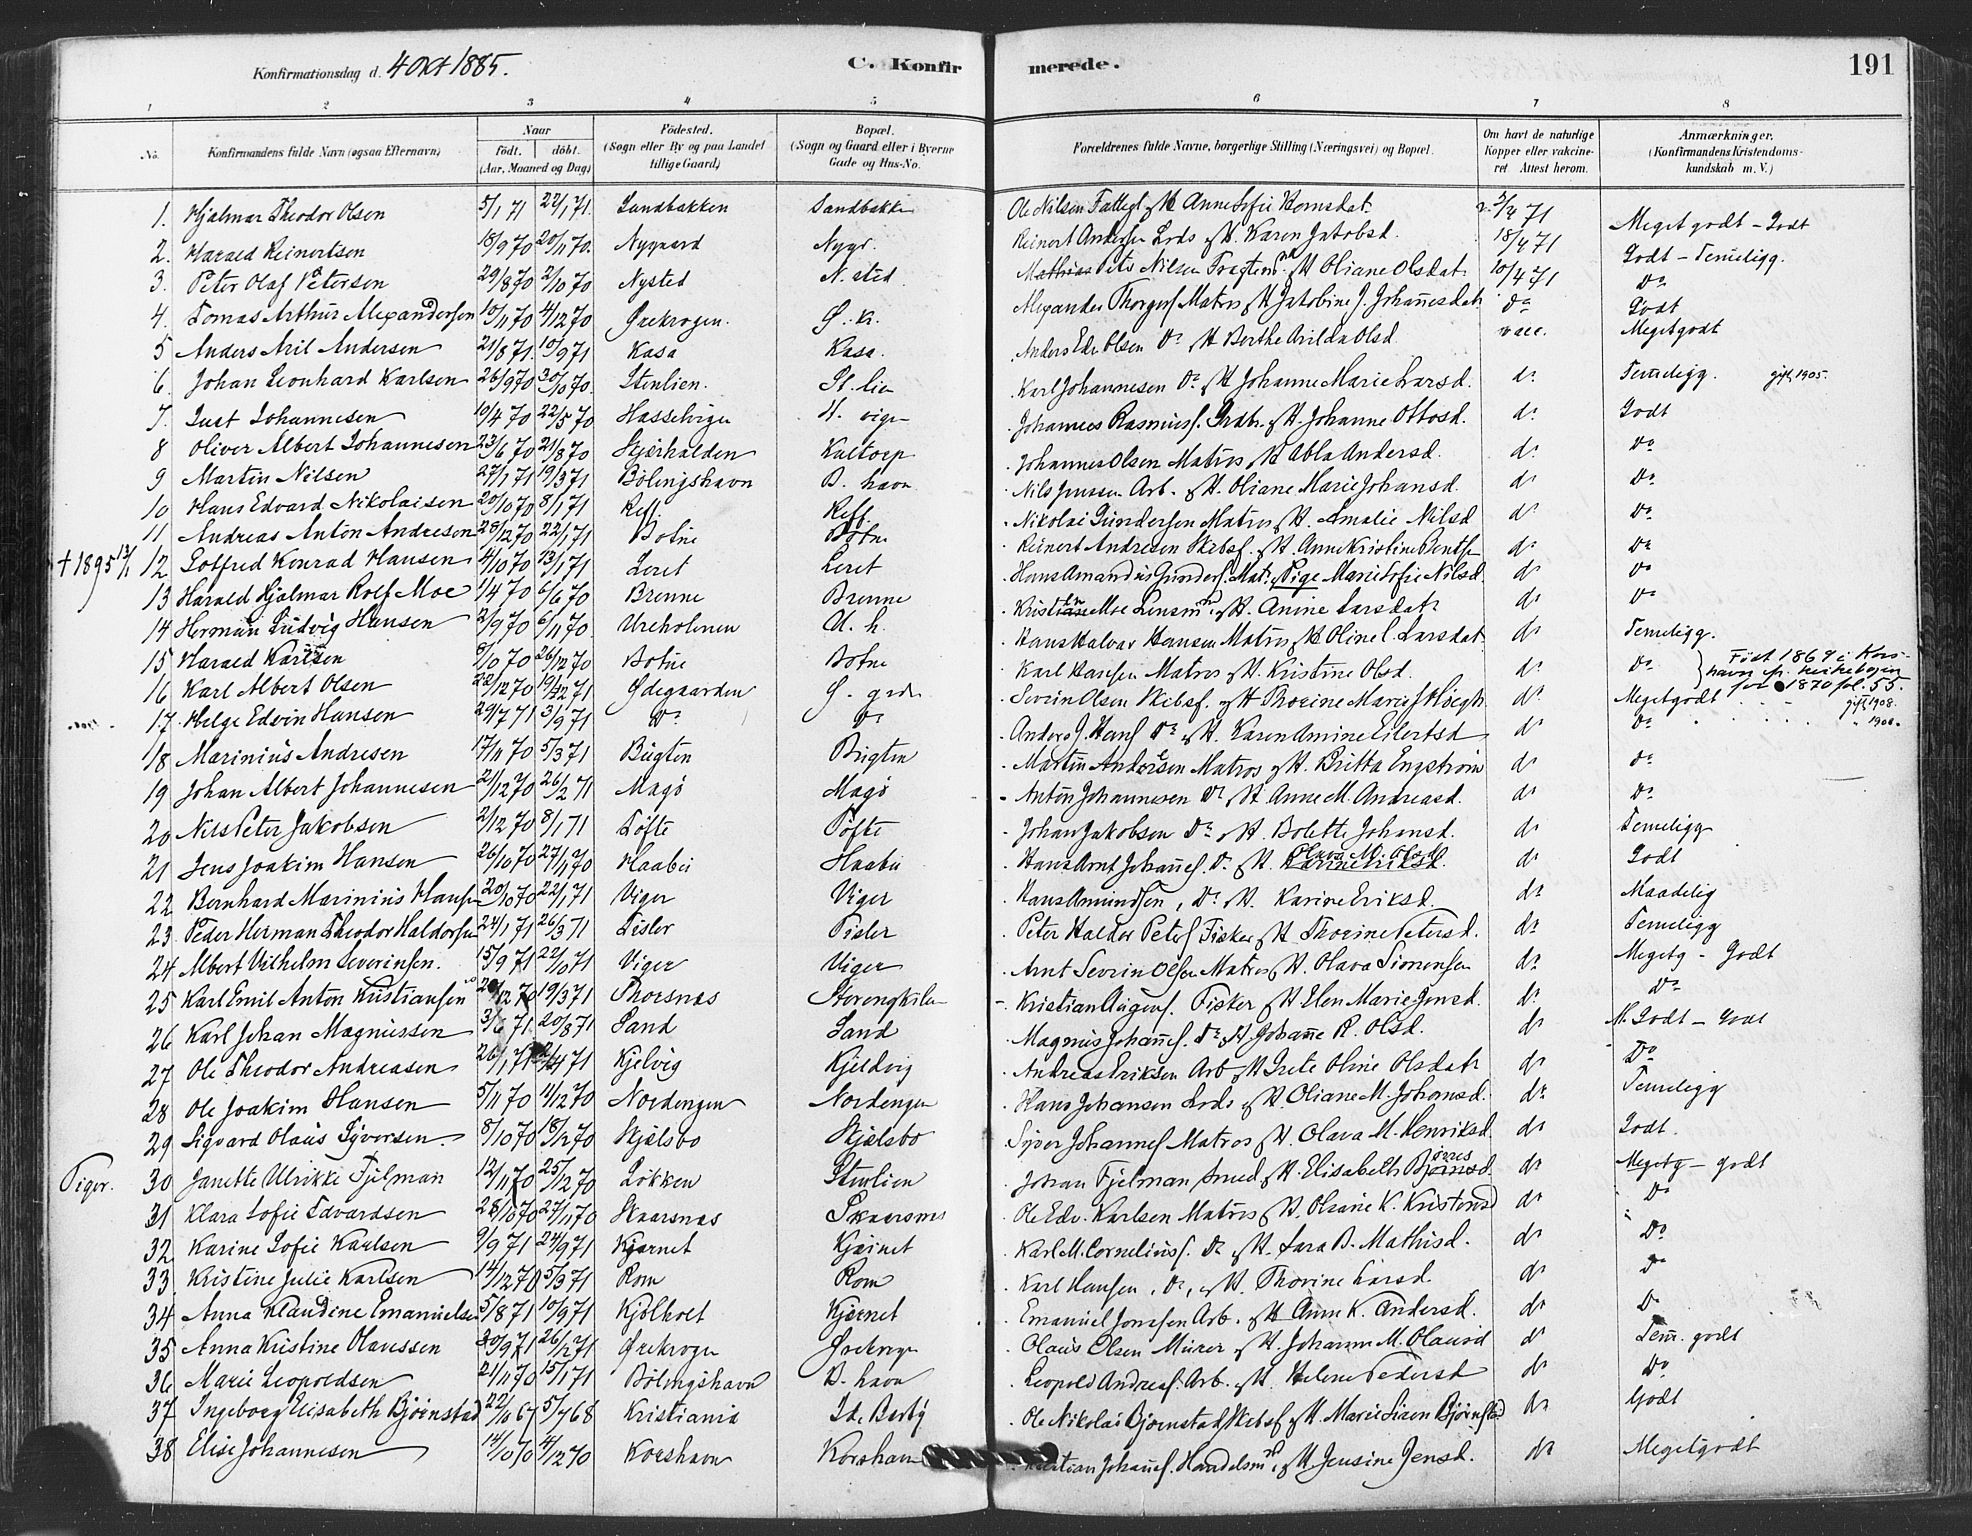 Konfirmationsdag d. 4 Okt 1885. C. Konfirmerede. 191
1 2 3 4 5 6 7 8
No. Konfirmandens fulde Navn (ogsaa Efternavn). Naar født. døbt. (Aar, Maaned og Dag) Fødested. (Sogn eller By og paa Landet tillige Gaard) Bopæl. (Sogn og Gaard eller i Byerne Gade og Hus-No. Forældrenes fulde Navne, borgerlige Stilling (Næringsvei) og Bopæl. Om havt de naturlige Kopper eller vakcineret Attest herom. Anmærkninger. (Konfirmandens Kristendomskundskab m. V.)
1. Hjalmar Theodor Olsen 5/1 71 22/1 71. Sandbakken Sandbakken Ole Nilsen Anne Sofie 71 Meget godt - Godt
2. Harald Reinertsen 18/9 70 20/11 70. Nygaard Nygr. Reinert Andersen Lods & H. Karen Jakobsd. 18/4 71 Godt - Temeligg.
3. Peter Olaf Petersen 29/8 70 2/10 70 Nysted N. sted Nilsen & H. Oliane Olsdat 10/4 71 Do
4. Tomas Arthur Alexandersen 10/11 70 4/12 70 Ørekrogen. Ø. k. Alexander Matros & H Jakobine J. Johannesdat do Godt
5 Anders Andersen 21/8 71. 10/9 71 Kasa Kasa. Anders Edv Olsen Do & H Berthe Olsd vacc. Meget godt
6. Johan Leonhard Karlsen 26/9 70 30/10 70. Stenlien. St. lien Karl Johannesen Do & H Johanne Marie Larsd. do Temeligg. gift 1905.
7. Just Johannesen 10/4 70 22/5 70 Hasselvigen H. vigen Johannes Rasmuss. & H. Johanne Ottosd. do Godt
8 Oliver Albert Johannesen 23/6 70 21/8 70 Skjærhalden Kaltorp Johannes Olsen Matros & H Abla Andersd. do Do
9 Martin Nilsen 27/1 71 19/3 71 Bølingshavn B. havn Nils Jenssen Arb. & H. Oliane Marie Johansd. do Do
10 Hans Edvard Nikolaisen 20/10 70 8/1 71 Reff Reff Nikolai Gundersen Matros & H. Amalie Nilsd do Do
11 Andreas Anton Andresen 28/12 70 22/1 71 Botne Botne Reinert Andresen Skibsf. & H. Anne Kristine do Do
† 1895 12 Gotfred Konrad Hansen 4/10 70 13/1 71 Leret Leret Hans Amandus Gunders. Mat. Pige Marie Sofie Nilsd. do Do
13 Harald Hjalmar Rolf Moe 1/4 70 6/6 70 Brenne Brenne Moe & H. Anine Larsdatr do Do
14 Herman Ludvig Hansen 2/9 70 6/11 70. Ureholmen U. h. Hans Halvor Hansen Matros & H Oline C. Larsdat do Temeligg.
15 Harald Karlsen 10 70 26/12 70 Botne Botne Karl Hansen Matros & H. Kristine Olsd. do Do Født 1869 i Korshavn kirkebogen for 1870 fol. 55.
16 Karl Albert Olsen 22/12 70 19/2 71 Ødegaarden Ø. grdn Severin Olsen Skibsf. & H Thorine Marie do Megetgodt gift 1908.
17. Helge Edvin Hansen 29/7 71 3/9 71 Do Do Anders J. Hans. Do & H. Karen Amine Eilertsd do Do " 1908.
18 Marinius Andresen 17/11 70 5/3 71 Bugten Bugten Martin Andersen Matros & H. Britta Engstrøm do do
19 Johan Albert Johannesen 2/12 70 26/2 71 Magø Magø Anton Johannesen Do & H. Anne M. Andreasd. do Do
20 Nils Peter Jakobsen 2/12 70 8/1 71 Tofte Tofte Johan Jakobsen Do & H. Bolette Johansd. do Temeligg
21 Jens Joakim Hansen 26/10 70 27/11 70 Haabu Haabu Hans Arnt Johannes. Do & H. do Godt
22 Bernhard Marinius Hansen 20/10 70 22/1 71 Viger Viger Hans Amundsen, Do & H. Karine Eriksd. do Maadelig
23 Peder Herman Theodor Haldorsen 24/1 71 26/3 71 Tisler Tisler Peter Haldor Peters. Fisker & H Thorine Petersd. do Temeligg
24 Albert Vilhelm Severinsen. 15/9 71 22/10 71 Viger Viger Arnt Severin Olsen Matros & H. Olava Simensen do Megetg - Godt
25 Karl Emil Anton Kristiansen 12 70 19/3 71 Thorsnæs Kristian Fisker & H Elen Marie Jensd. do Do
26 Karl Johan Magnussen 3/6 71. 20/8 71 Sand Sand Magnus Johannes. Do & H Johanne R. Olsd. do M. Godt - Godt
27 Ole Theodor Andreasen 26/1 71 4 71 Kjelvig Kjeldvig Andreas Eriksen Arb & H Grete Oline Olsdatr do Do
28 Ole Joakim Hansen 5/11 70 4/12 70 Nordengen Nordengen Hans Johansen Lods & H. Oliane M. Johansd. do Temeligg
29 Sigvard Olaus Syversen 8/10 70 18/12 70 Skjelsbo Skjelsbo Syver Johannes. Matros & H. Olava M. Henriksd. do Godt.
Piger. 30 Janette Ulrikke Fjelman 12/11 70 25/12 70 Løkken Stenlien Johan Fjelman Smed & H. Elisabeth do Megetg - godt
31 Klara Sofie Edvardsen 28/10 70 27/11 70 Skaarsnæs Skaarsnæs Ole Edv. Karlsen Matros & H. Olsane K. Kristensd do Do
32 Karine Sofie Karlsen 9/9 71 24/9 71 Kjærnet Kjærnet Karl M. Cornelius. Do & H. Sara B. Mathisd. do Do
33 Kristine Julie Karlsen 14/12 70 5/3 71 Rom Rom Karl Hansen, Do, & H. Thorine Larsd. do Do
34 Anna Klaudine Emanuelsen 5/8 71 10/9 71 Kjølholt Kjærnet Emanuel Jonssen Arb. & H Anne K. Andersd. do Do
35 Anna Kristine Olaussen 30/9 71 26/12 71 Ørekrogen Ørekrogen Olaus Olsen Murer & H. Johanne M. Olausd do Tem. godt
36 Marie Leopoldsen 21/11 70 15/1 71 Bølingshavn B. havn Leopold Andreas. Arb. & H. Helene Pedersd do Do
37 Ingeborg Elisabeth Bjørnstad 22/10 67 5/7 68 Kristiania Ole Nikolai Bjørnstad Skibsf. & H. Marie Bjørnstad do Godt
38 Elise Johannesen 14/10 70 4/12 70 Korshavn Korshavn Johannes. Handelsmd, & H. Jensine Jensd. do Megetgodt